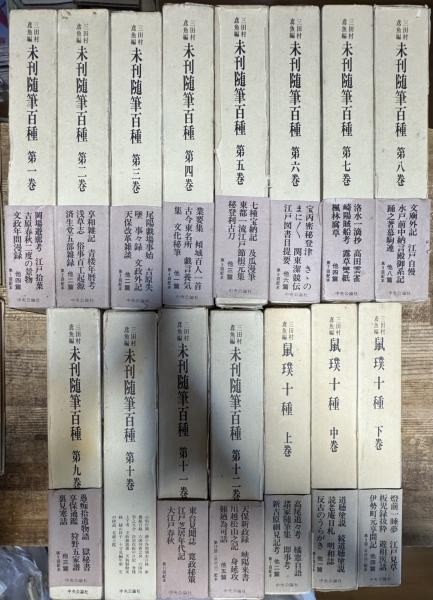 三田村
鳶魚編
未刊随筆百種 第一巻
岡場遊廓考 江戸拾葉
吉原春秋二度の景物
文政年間漫録 他四篇
中央公論社
三田村
鳶魚編
未刊随筆百種 第二巻
享和雑記 青楼年暦考
浅草志 俗事百工起源
済生堂五部雑録 他二篇
中央公論社
三田村
鳶魚編
未刊随筆百種 第三巻
尾陽戯場事始 吉原失
墜 事々録 文政外記
天保改革雑談
中央公論社
三田村
鳶魚編
未刊随筆百種 第四巻
業要集 傾城百人一首
古今東名所 戯言養気
集 文化秘筆
中央公論社
三田村
鳶魚編
未刊随筆百種 第五巻
七種宝納記 及瓜漫筆
東都一流江戸節根元集
秘登利古刀 他三篇
中央公論社
三田村
鳶魚編
未刊随筆百種 第六巻
宝丙密秘登津 きゝの
まにく 関東潔競伝
江戸図書目提要 他二篇
中央公論社
三田村
鳶魚編
未刊随筆百種 第七巻
洛水一滴抄 高田雲雀
崎陽賊船考 露草雙紙
楓林腐草 他四篇
中央公論社
三田村
鳶魚編
未刊随筆百種 第八巻
文廟外記 江戸自慢
水戸前中納言殿御系記
踊之著慕駒連 他六篇
中央公論社
三田村
鳶魚編
未刊随筆百種 第九巻
愚痴拾遺物語 獄秘書
享保通鑑 狩野五家譜
裏見寒話 他三篇
中央公論社
三田村
鳶魚編
未刊随筆百種 第十巻
中央公論社
三田村
鳶魚編
未刊随筆百種 第十一巻
東台見聞誌 寛政秘策
江戸芝居年代記
大江戸春秋
中央公論社
三田村
鳶魚編
未刊随筆百種 第十二巻
天保新政録 峡陽来書
川越松山之記 身延攻
他五篇
中央公論社
三田村
鳶魚編
鼠璞十種 上巻
高尾追々考 橘窓自語
諸家随筆集 即事考
新吉原細見記考 他三篇
中央公論社
三田村
鳶魚編
鼠璞十種 中巻
道聴塗説 続道聴塗説
読老庵日札 明和誌
反古のうらがき 他二篇
中央公論社
三田村
鳶魚編
鼠璞十種 下巻
燈前一睡夢 江戸見草
板児録抜粋 遊相医話
伊勢町元享間記 他四篇
中央公論社